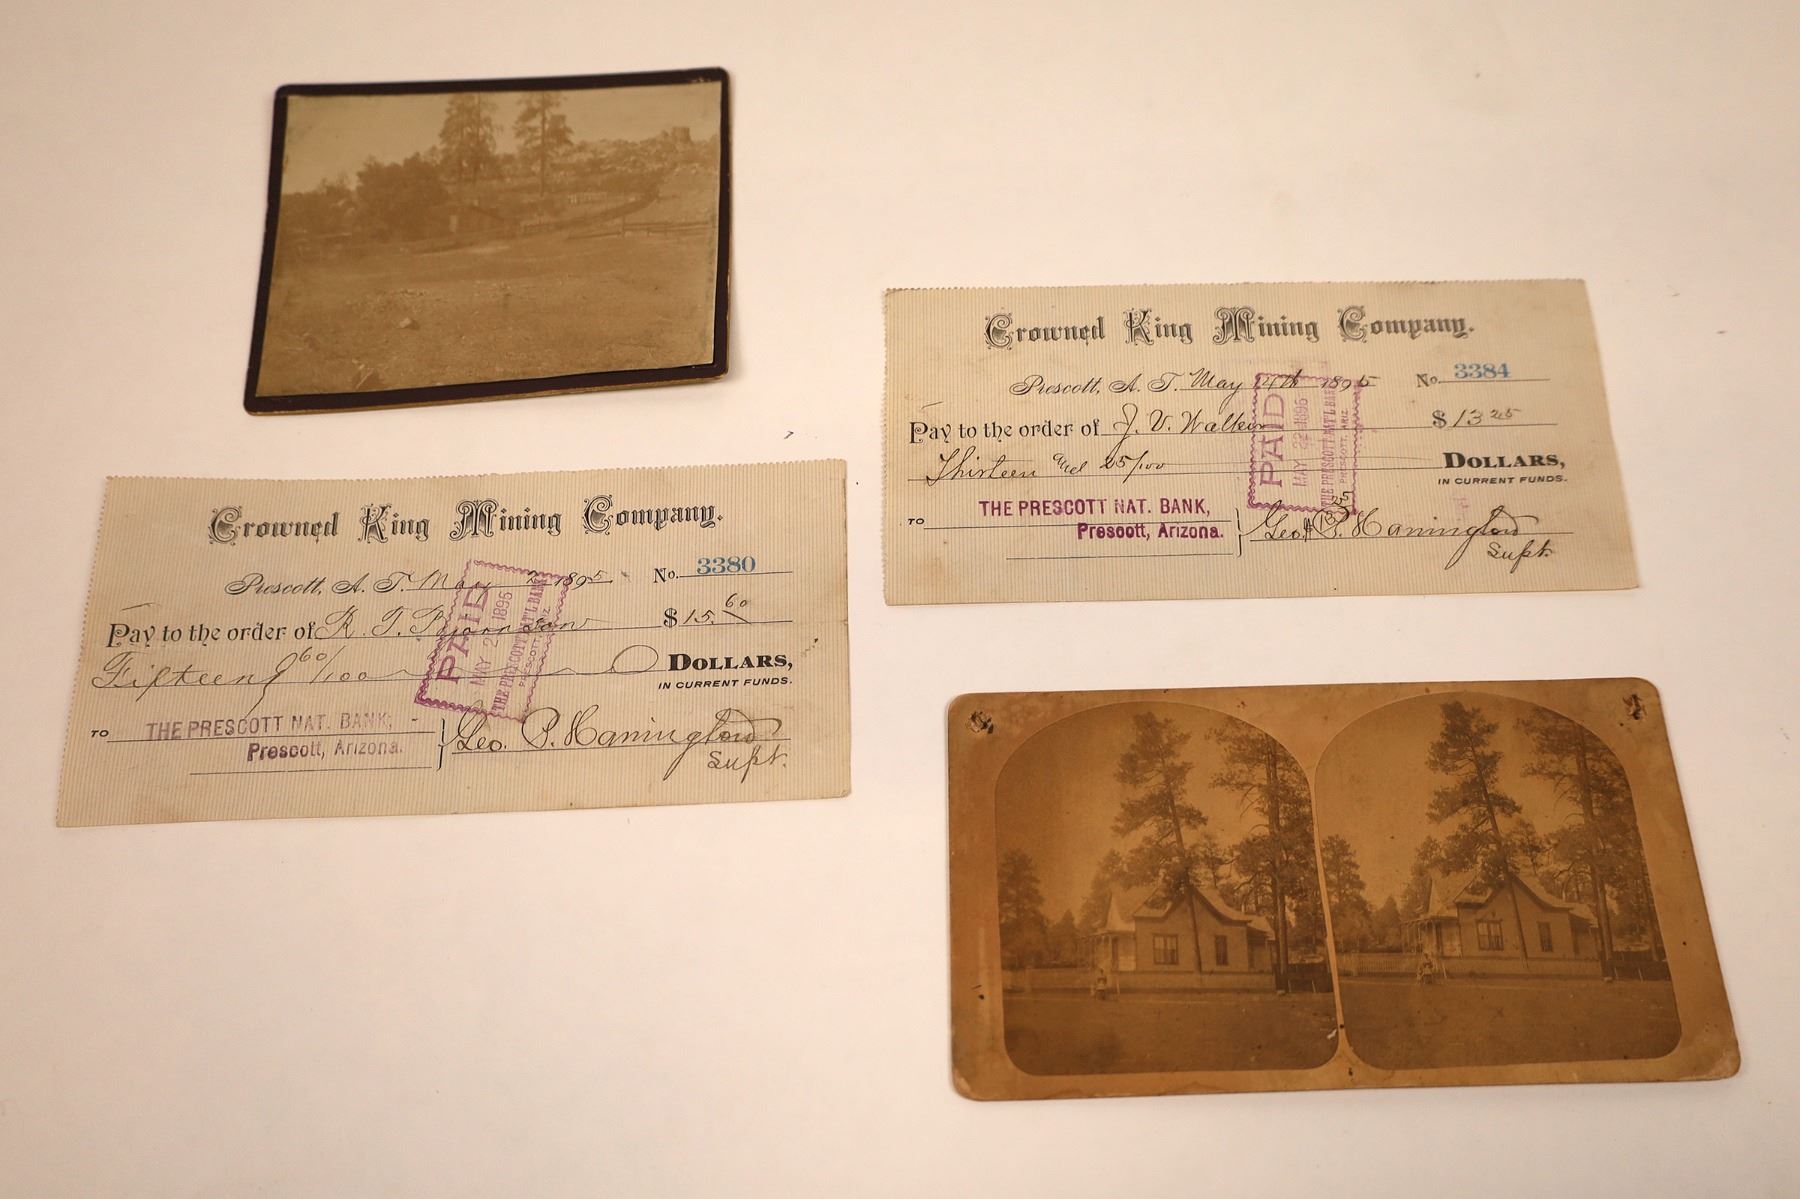 Crowned King Mining Company.
Prescott, A. T. May 1895 No. 3380
Pay to the order of R. T. $15.60
Fifteen & 60/100 DOLLARS,
IN CURRENT FUNDS.
TO THE PRESCOTT NAT. BANK,
Prescott, Arizona.
Geo. P. Harrington
Supt.
PAID
MAY 1895
THE PRESCOTT NAT'L BANK
PRESCOTT, ARIZ
Crowned King Mining Company.
Prescott, A. T. May 14th 1895 No. 3384
Pay to the order of J. V. Walker $13 25
Thirteen and 25/100 DOLLARS,
IN CURRENT FUNDS.
TO THE PRESCOTT NAT. BANK,
Prescott, Arizona.
Geo. P. Harrington
Supt.
PAID
MAY 22 1895
THE PRESCOTT NAT'L BANK
PRESCOTT, ARIZ